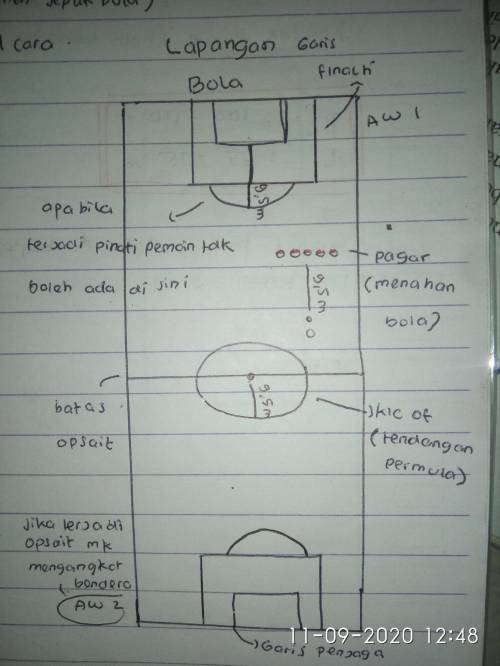 sepak bola)
cara
Lapangan Garis
Bola
finalti
AW 1
9,5 m
apabila
terjadi pinati pemain tdk
boleh ada di sini
pagar
(menahan
bola)
9,5 m
9,5 m
batas
opsait
skic of
(tendangan
permula)
jika terjadi
opsait mk
mengangkat
bendera
AW 2
Garis penjaga
11-09-2020 12:48